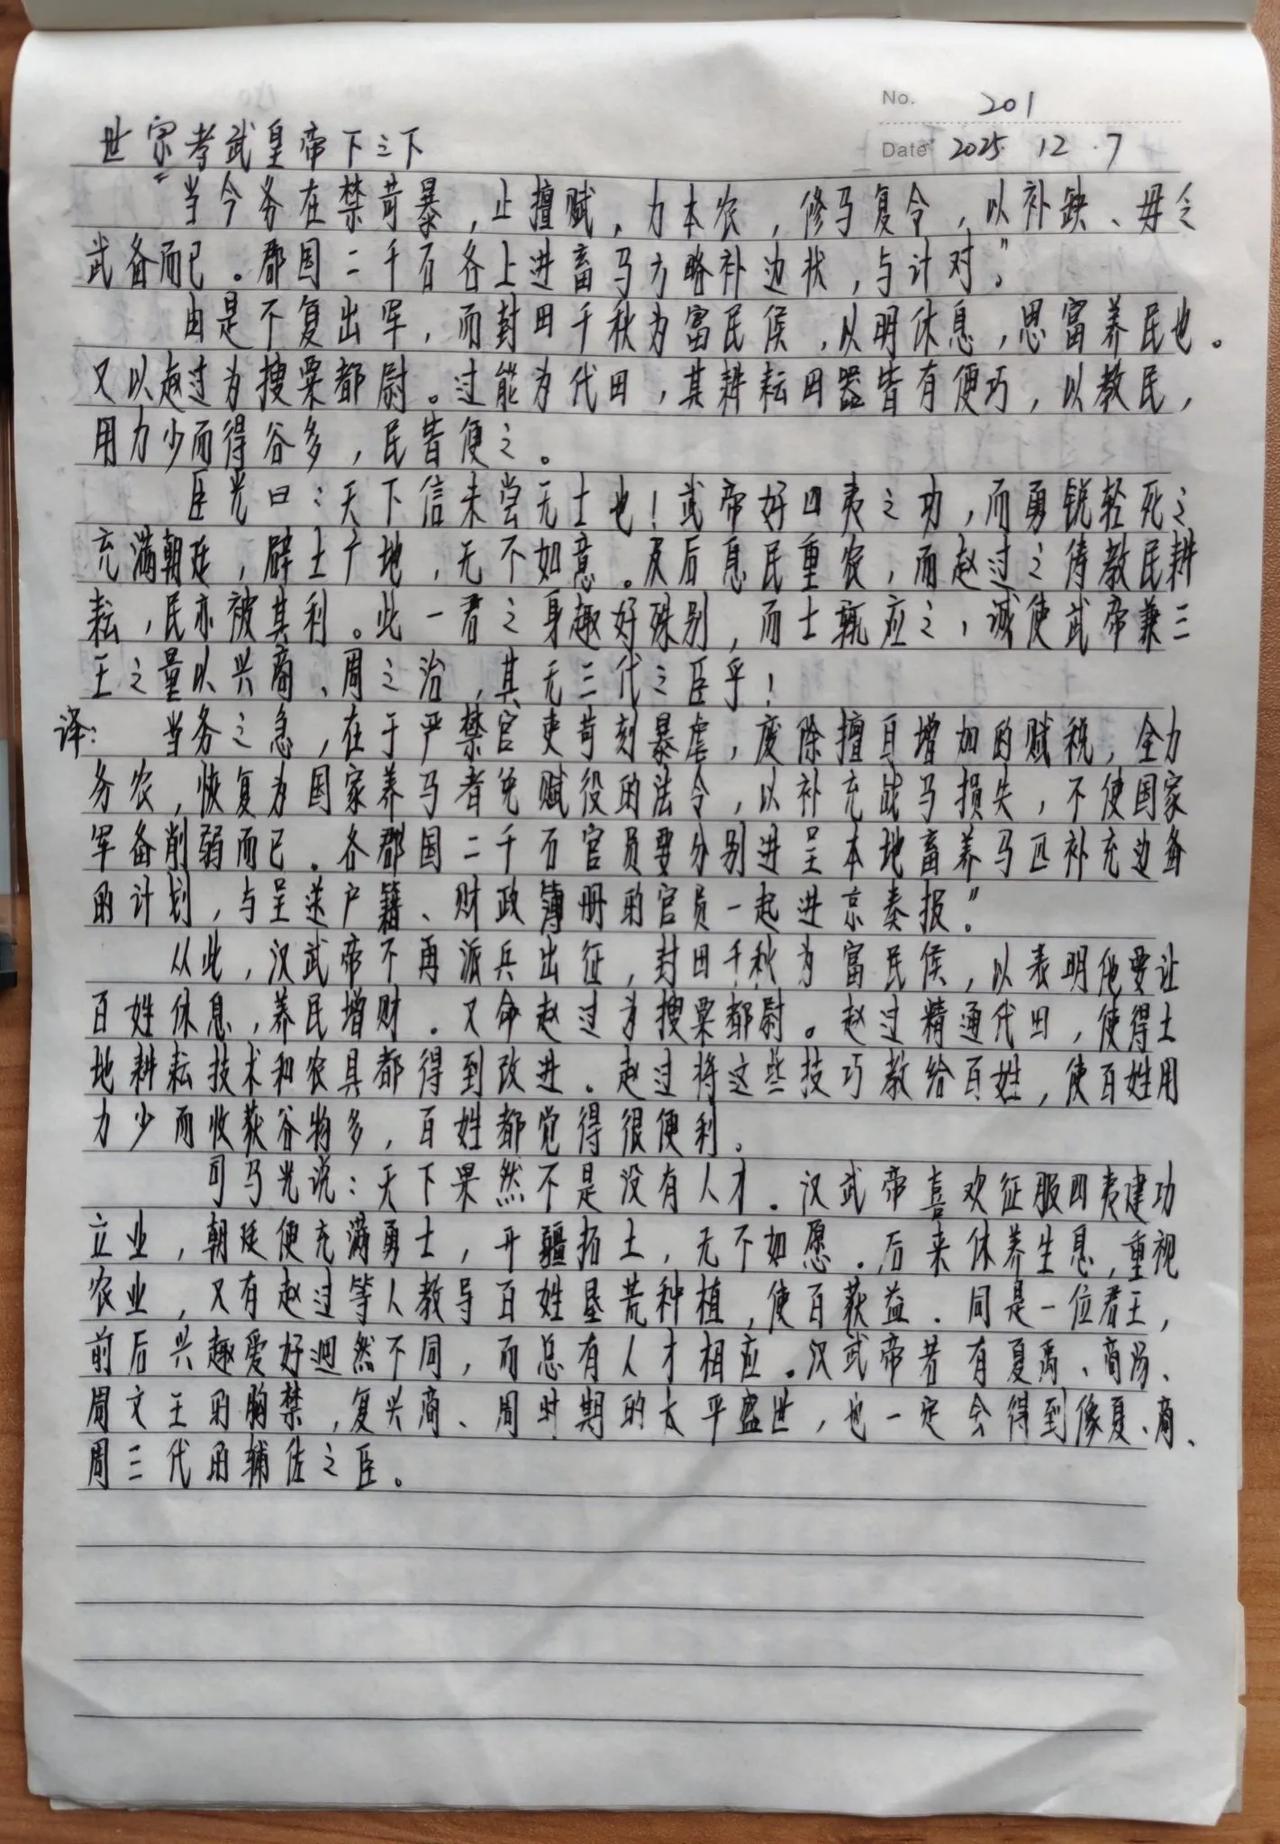 No. 201
世宗孝武皇帝下之下
Date 2025 12.7
“当今务在禁苛暴，止擅赋，力本农，修马复令，以补缺、毋乏
武备而已。郡国二千石各上进畜马方略补边状，与计对。”
由是不复出军，而封田千秋为富民侯，以明休息，思富养民也。
又以赵过为搜粟都尉。过能为代田，其耕耘田器皆有便巧，以教民，
用力少而得谷多，民皆便之。
臣光曰：天下信未尝无士也！武帝好四夷之功，而勇锐轻死之
充满朝廷，辟土广地，无不如意。及后息民重农，而赵过之俦教民耕
耘，民亦被其利。此一君之身趣好殊别，而士辄应之，诚使武帝兼三
王之量以兴商、周之治，其无三代之臣乎！
译：当务之急，在于严禁官吏苛刻暴虐，废除擅自增加的赋税，全力
务农，恢复为国家养马者免赋役的法令，以补充战马损失，不使国家
军备削弱而已。各郡国二千石官员要分别进呈本地畜养马匹补充边备
的计划，与呈送户籍、财政簿册的官员一起进京奏报。”
从此，汉武帝不再派兵出征，封田千秋为富民侯，以表明他要让
百姓休息，养民增财。又命赵过为搜粟都尉。赵过精通代田，使得土
地耕耘技术和农具都得到改进。赵过将这些技巧教给百姓，使百姓用
力少而收获谷物多，百姓都觉得很便利。
司马光说：天下果然不是没有人才。汉武帝喜欢征服四夷建功
立业，朝廷便充满勇士，开疆拓土，无不如愿。后来休养生息，重视
农业，又有赵过等人教导百姓垦荒种植，使百获益．同是一位君王，
前后兴趣爱好迥然不同，而总有人才相应。汉武帝若有夏禹、商汤、
周文王的胸禁，复兴商、周时期的太平盛世，也一定会得到像夏、商、
周三代的辅佐之臣。